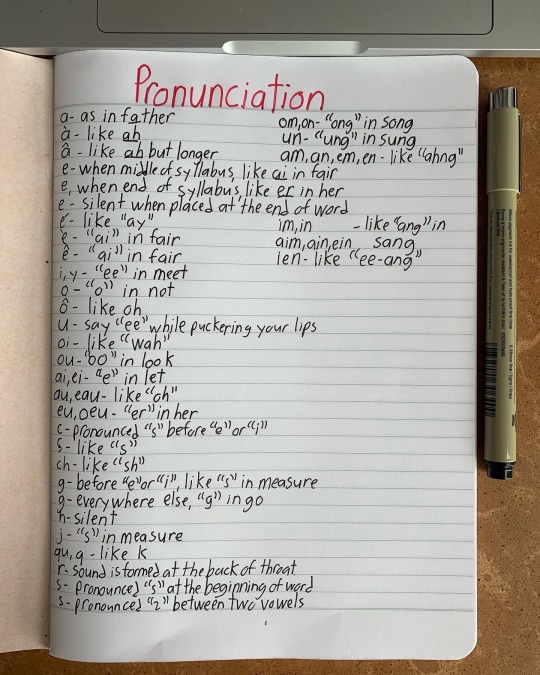 Pronunciation
a- as in father
à- like ah
â- like ah but longer
e- when middle of syllabus, like ai in fair
e, when end of syllabus, like er in her
e- silent when placed at the end of word
é- like "ay"
è- "ai" in fair
ê- "ai" in fair
i, y- "ee" in meet
o- "o" in not
ô- like oh
u- say "ee" while puckering your lips
oi- like "wah"
ou- "oo" in look
ai, ei- "e" in let
au, eau- like "oh"
eu, oeu- "er" in her
c- pronounced "s" before "e" or "i"
ç- like "s"
ch- like "sh"
g- before "e" or "i", like "s" in measure
g- everywhere else, "g" in go
h- silent
j- "s" in measure
qu, q- like k
r- sound is formed at the back of throat
s- pronounced "s" at the beginning of word
s- pronounced "z" between two vowels
om, on- "ong" in song
un- "ung" in sung
am, an, em, en- like "ahng"
im, in - like "ang" in
aim, ain, ein sang
ien- like "ee-ang"